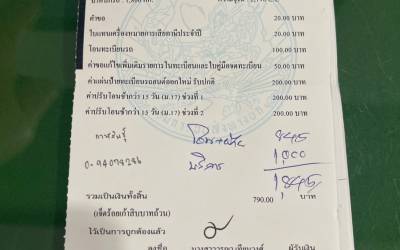 ค่าขอ 20.00 บาท
ใบแทนเครื่องหมายการเสียภาษีประจำปี 20.00 บาท
โอนทะเบียนรถ 100.00 บาท
ค่าขอแก้ไขเพิ่มเติมรายการในทะเบียนและใบคู่มือจดทะเบียน 50.00 บาท
ค่าแผ่นป้ายทะเบียนรถยนต์ออกใหม่ รับปกติ 200.00 บาท
ค่าปรับโอนช้ากว่า 15 วัน (ม.17) ช่วงที่ 1 200.00 บาท
ค่าปรับโอนช้ากว่า 15 วัน (ม.17) ช่วงที่ 2 200.00 บาท
845
บริการ 1,000
1,845
รวมเป็นเงินทั้งสิ้น 790.00 บาท
(เจ็ดร้อยเก้าสิบบาทถ้วน)
ไว้เป็นการถูกต้องแล้ว
ลงชื่อ ผู้รับเงิน